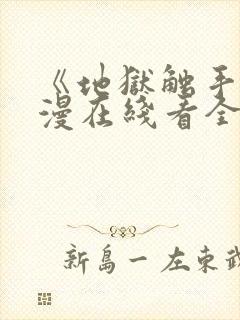 《地獄触手
漫在綫看全
新島一 左東武